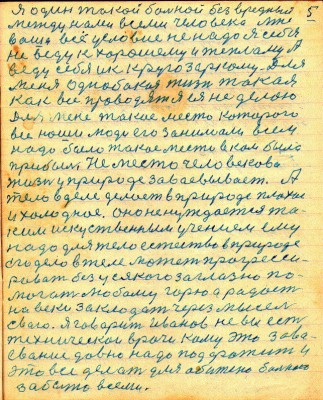 Я один такой больной без вредный 5
между нами всеми человека мне
ваша все условие не надо я себя
не веду к хорошему и теплому А
веду себя и к Для
меня однобокая такая
как все проводятся я не делаю
Для мене такое место которого
все наши люди его занимали всем
надо было такое место в ком было
прибыль. Не место человекова
жизни природе заваевывает. А
тело в деле делает в природе плохое
и холодное. Оно не нуждается та-
ким искуственным учением ему
надо для тело естество в природе
его дело в теле может прогресси-
ровать без усякого заглазно по-
могать любому горю а радость
на веки закладет через мысел
свою. Я говорит Иванов не вы есть
технический врачи кому это зава-
евание давно надо подражить и
это все делат для обижено больного
забыто всеми.